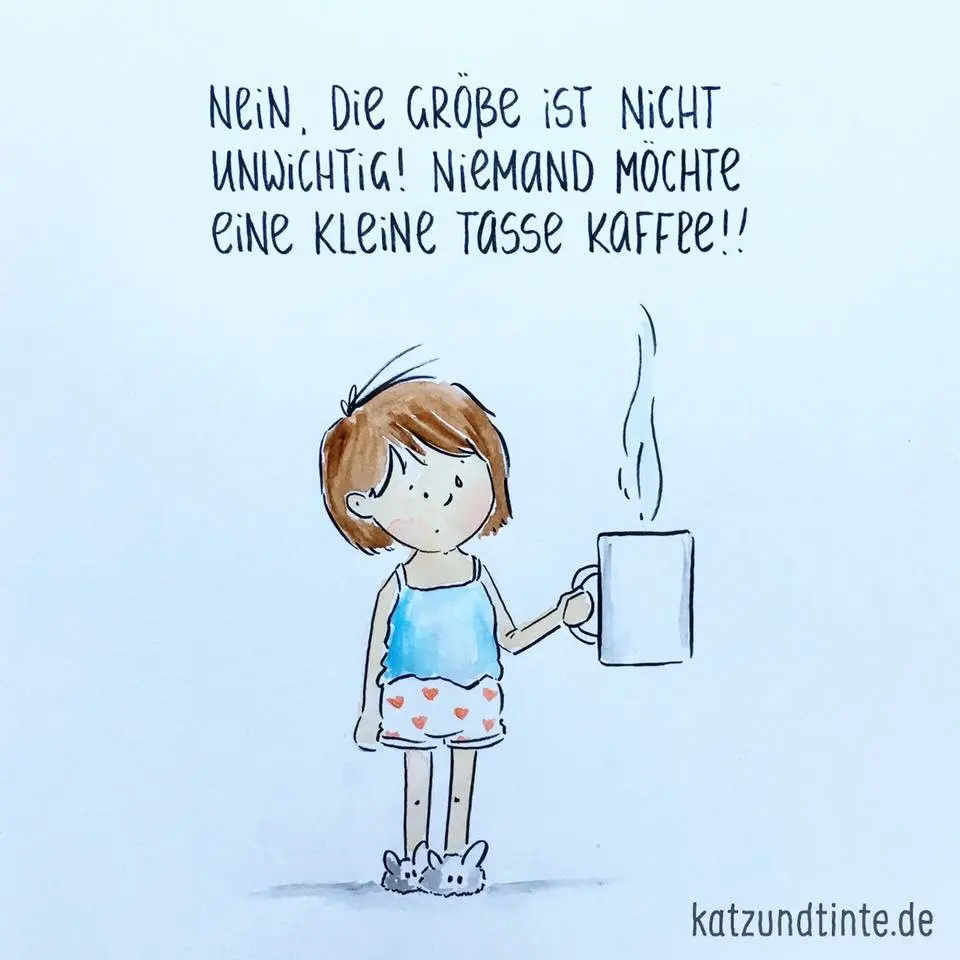 Nein, die Größe ist nicht
unwichtig! Niemand möchte
eine kleine Tasse Kaffee!!
katzundtinte.de